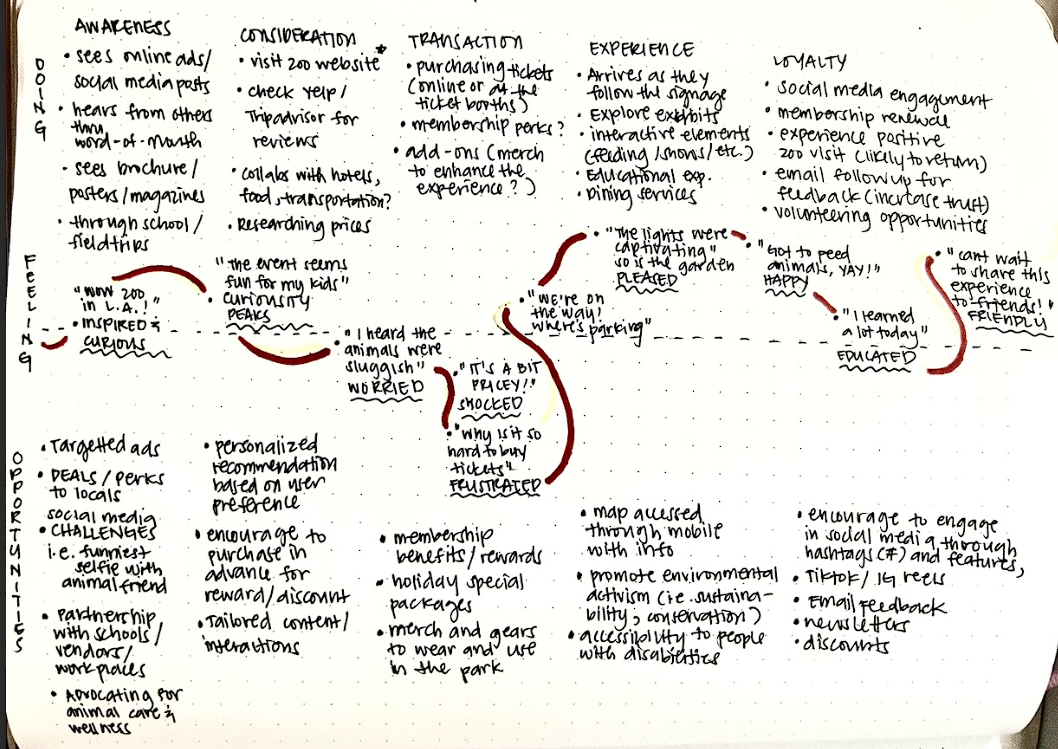 AWARENESS
CONSIDERATION
TRANSACTION
EXPERIENCE
LOYALTY
DOING
• sees online ads/
social media posts
• hears from others
thru
word-of-mouth
• sees brochure/
posters/magazines
• through school/
fieldtrips
• visit zoo website
• check yelp/
Tripadvisor for
reviews
• collabs with hotels,
food, transportation?
• Researching prices
• purchasing tickets
(online or at the
ticket booths)
• membership perks?
• add-ons (merch
to enhance the
experience?)
• Arrives as they
follow the signage
• Explore exhibits
• interactive elements
(feeding/shows/etc.)
• Educational exp.
• Dining services
• social media engagement
• membership renewal
• experience positive
zoo visit (likely to return)
• email followup for
feedback (increase trust)
• volunteering opportunities
FEELING
"wow zoo
in L.A.!"
• INSPIRED &
CURIOUS
"the event seems
fun for my kids"
• CURIOUSITY
PEAKS
• "I heard the
animals were
sluggish"
WORRIED
• "IT'S A BIT
PRICEY!"
SHOCKED
• "why is it so
hard to buy
tickets"
FRUSTRATED
• "we're on
the way!
where's parking"
• "The lights were
captivating"
so is the garden
PLEASED
• "Got to feed
animals, YAY!"
HAPPY
• "I learned
a lot today"
EDUCATED
• "cant wait
to share this
experience
to friends!"
FRIENDLY
OPPORTUNITIES
• Targetted ads
• DEALS/perks
to locals
social media
• CHALLENGES
i.e. funniest
selfie with
animal friend
• Partnership
with schools/
vendors/
workplaces
• Advocating for
animal care &
wellness
• personalized
recommendation
based on user
preference
• encourage to
purchase in
advance for
reward/discount
• Tailored content/
interactions
• membership
benefits/rewards
• holiday special
packages
• merch and gears
to wear and use
in the park
• map accessed
through mobile
with info
• promote environmental
activism (i.e. sustaina-
bility, conservation)
• accessibility to people
with disabilities
• encourage to engage
in social media through
hashtags (#) and features,
• Tiktok/IG reels
• Email feedback
• newsletters
• discounts